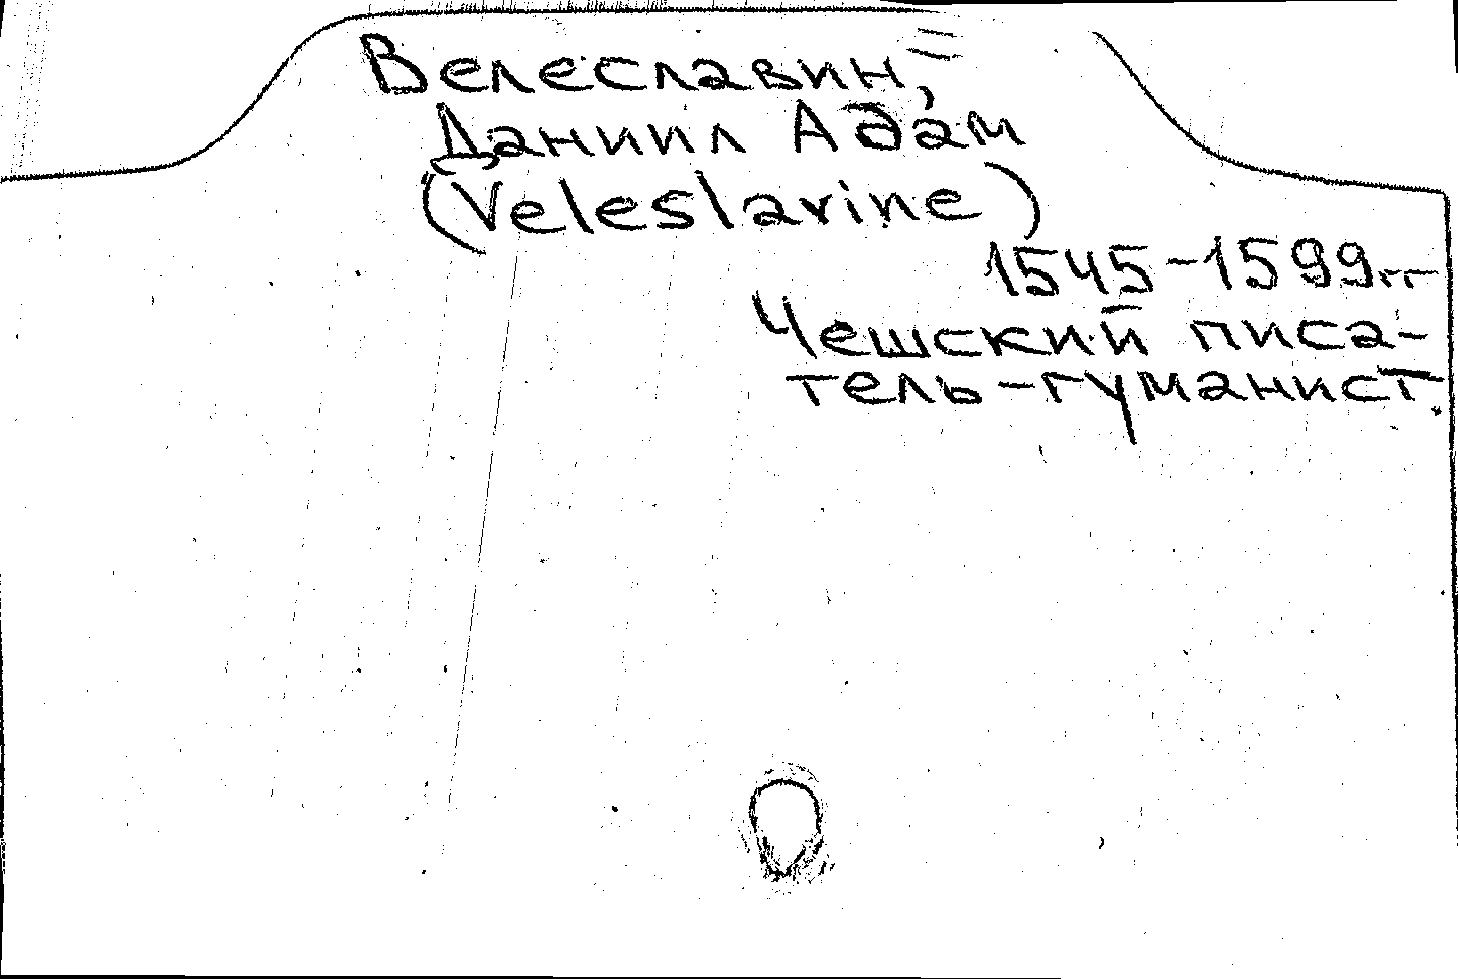 Велеславин,
Даниил Адам
(Veleslavine)
1545-1599гг
Чешский писа-
тель-гуманист.